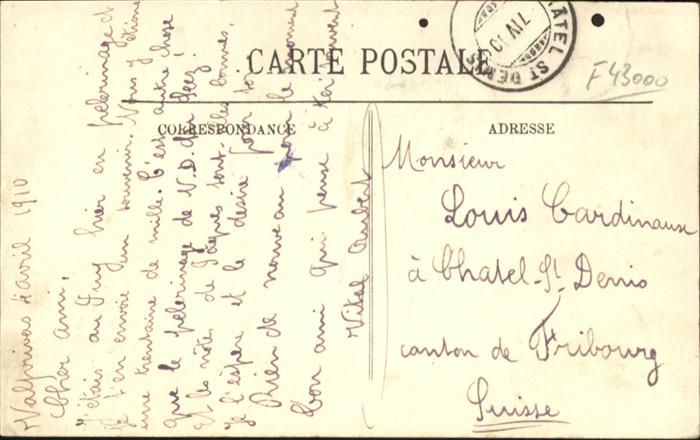 CARTE POSTALE
CORRESPONDANCE
ADRESSE
CHÂTEL ST DENIS
7 IV 10
F43000
Valprivas 4 avril 1910
Cher ami,
J'étais au Puy hier en pelerinage et
je t'en envoie un souvenir. Nous y étions
une trentaine de mille. C'est autre chose
que le pelerinage de N.D. du
Et les notes de Pâques sont-elles bonnes.
Je l'espère et le désire pour toi.
Rien de nouveau pour le moment
Ton ami qui pense à toi souvent
Vital Aubert
Monsieur
Louis Cardinaux
à Chatel-St Denis
canton de Fribourg
Suisse